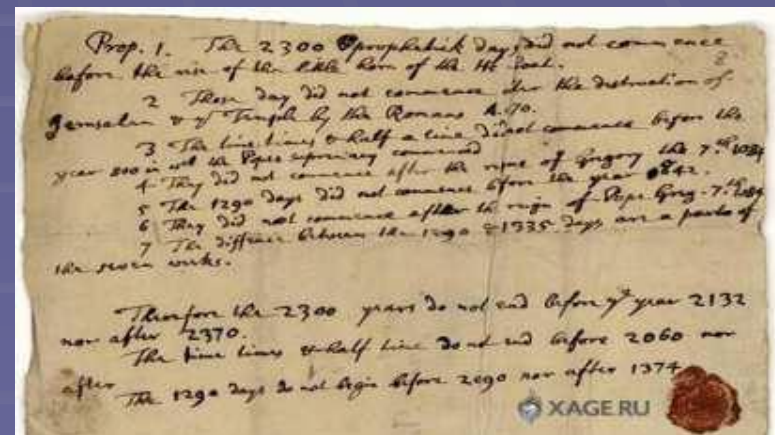 Prop. 1. The 2300 prophetick days did not commence
before the rise of the little horn of the He Goat.
2 Those day did not commence after the destruction of
Jerusalem & ye Temple by the Romans A. 70.
3 The time times & half a time did not commence before the
year 800 in wch the Popes supremacy commenced
4 They did not commence after the reigne of Gregory the 7.th 1084
5 The 1290 days did not commence before the year 842.
6 They did not commence after the reign of Pope Greg. 7.th 1084
7 The diffrence between the 1290 & 1335 days are a parts of
the seven weeks.
Therefore the 2300 years do not end before ye year 2132
nor after 2370.
The time times & half time do not end before 2060 nor
after
The 1290 days do not begin before 2090 nor after 1374
XAGE.RU